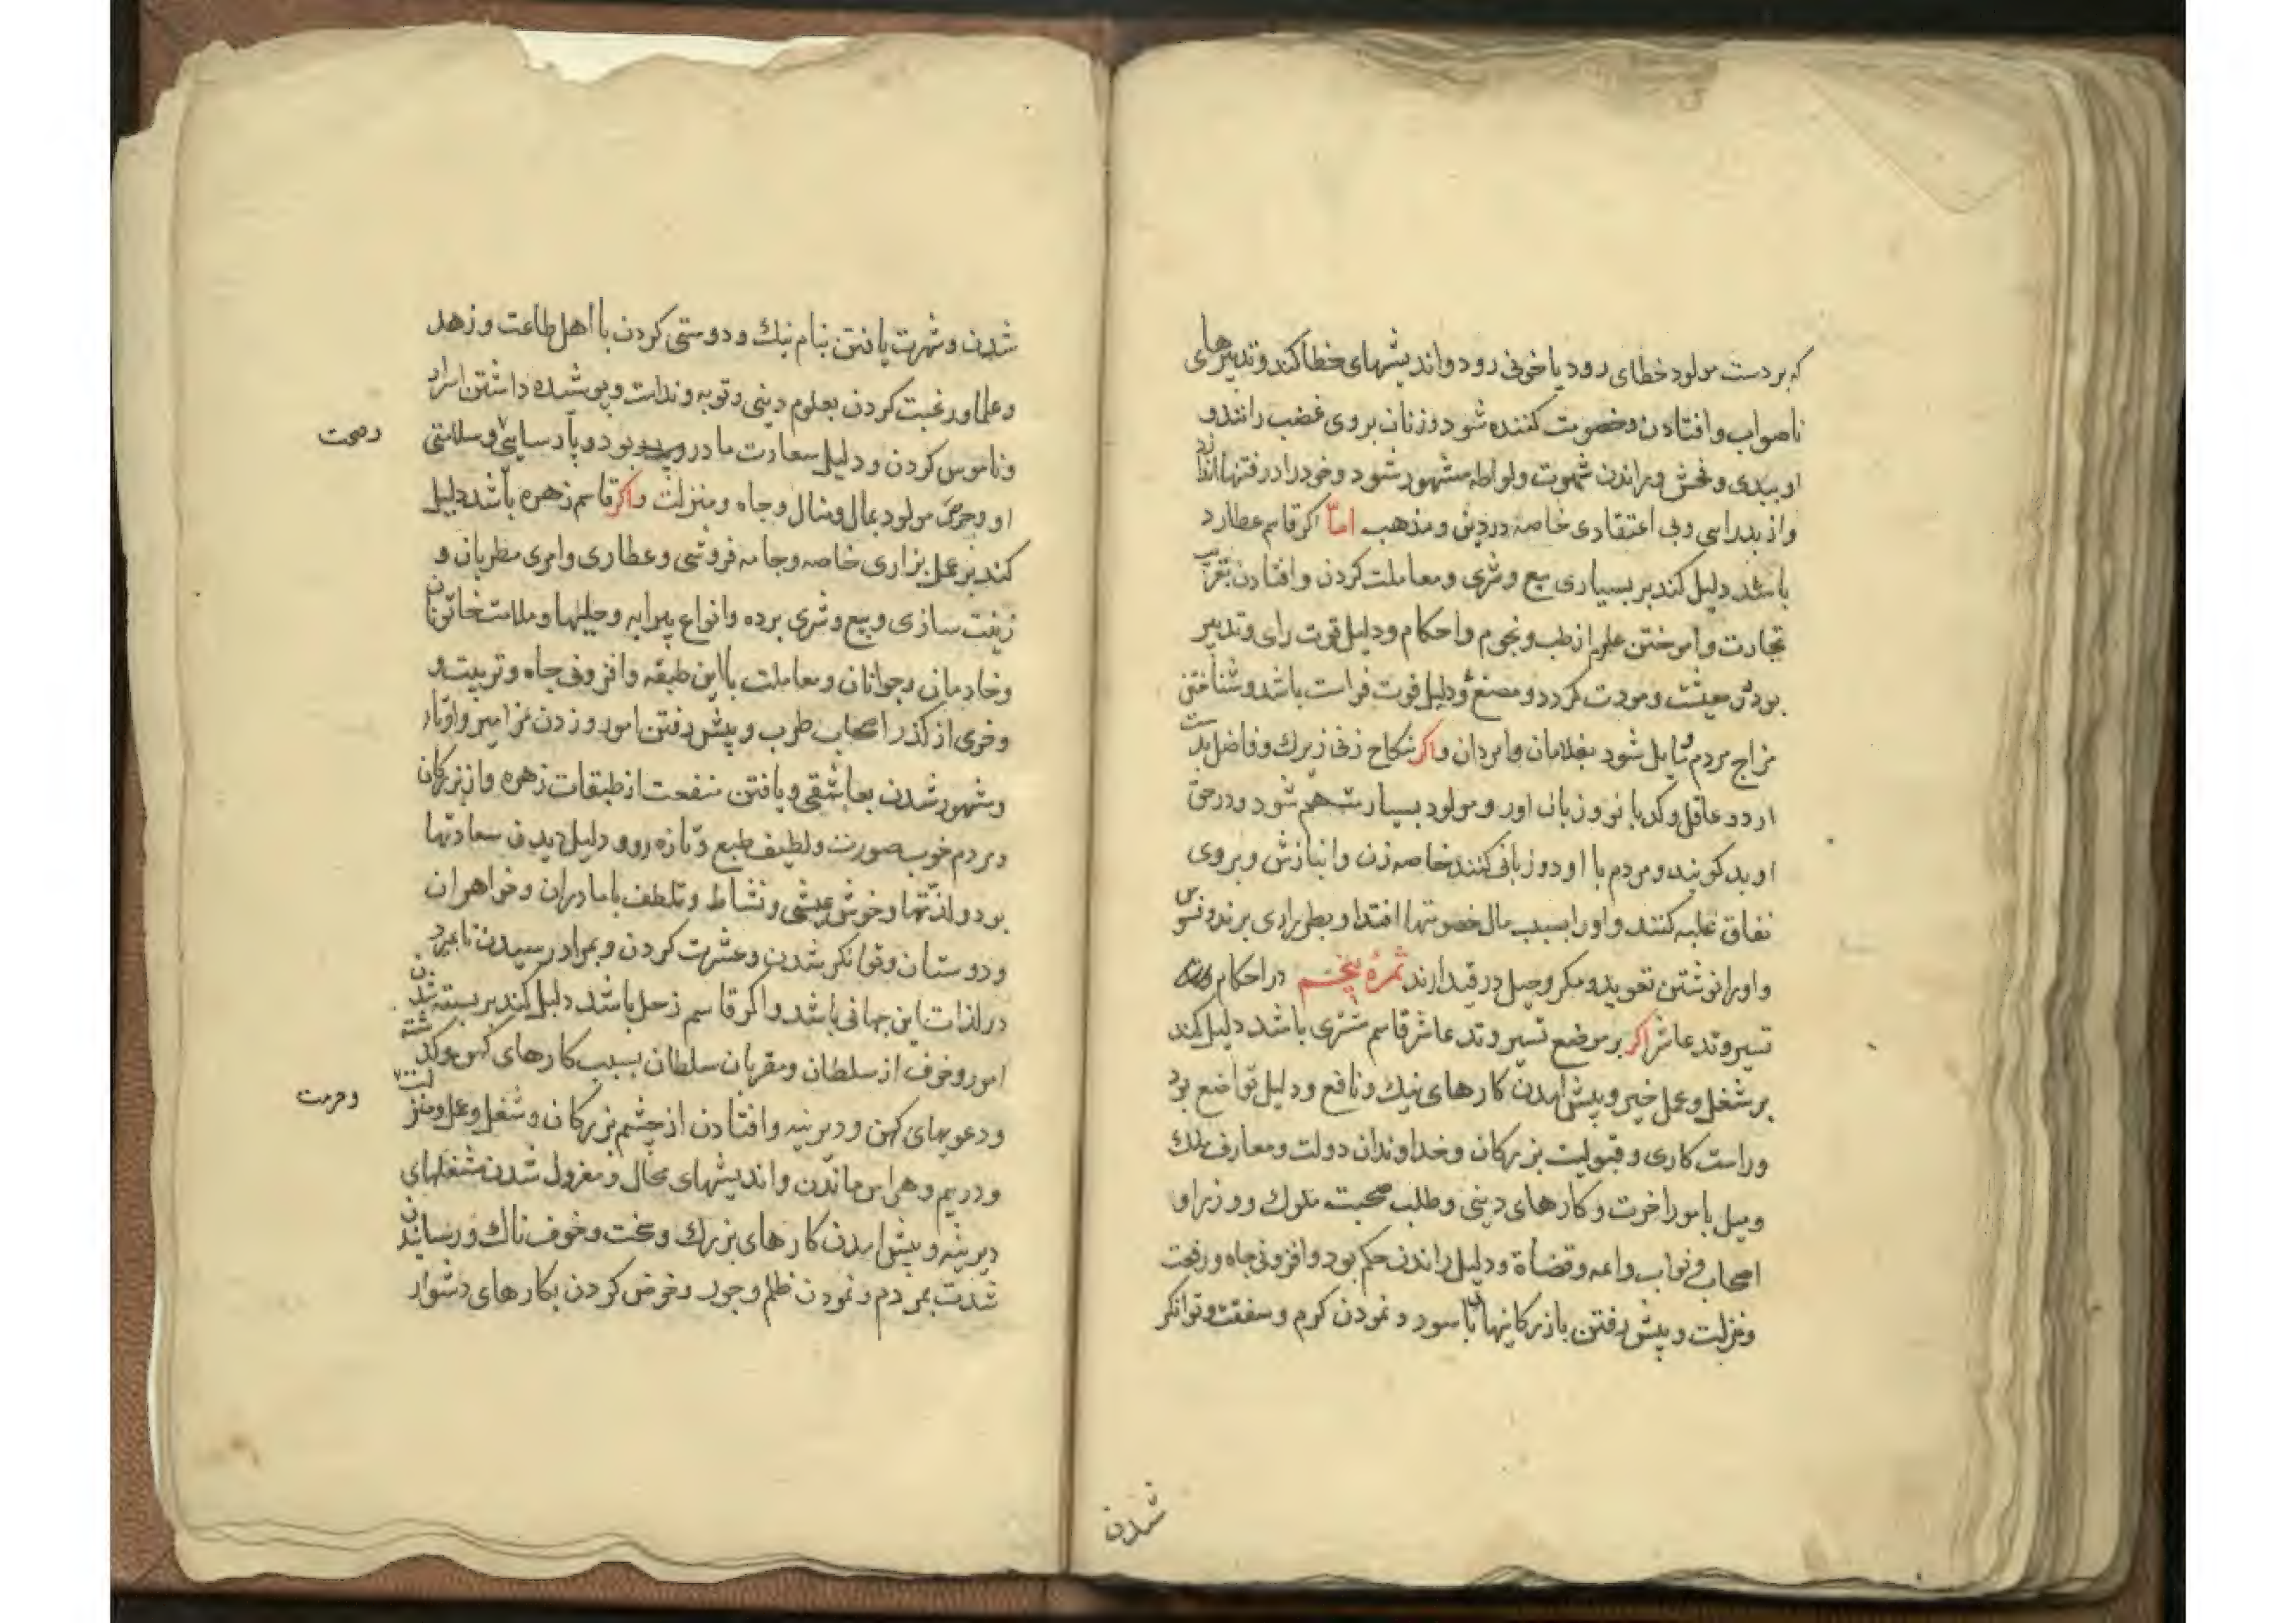 که بر دست مولود خطای رود یا خونی رود و اندیشهای خطا کند و تدبیرهای
ناصواب و افتادن و خصومت کننده شود و زنان بروی غضب رانند و
او ببدی و فحش و براندن شهوت و لواطه مشهور شود و خود را در فتنها اندازد
و از بد رای و بی اعتقادی خاصه در دین و مذهب امّا اکر قاسم عطارد
باشد دلیل کند بر بسیاری بیع و شری و معاملت کردن و افتادن بغربت
تجارت و اموختن علوم از طب و نجوم و احکام و دلیل قوت رای و تدبیر
بودن معیشت و مودت کردد و مصنع و دلیل قوت فراست باشد و شناختن
مزاج مردم و مایل شود بغلامان و امردان و اکر نکاح زنی زیرک و فاضل بدست
ارد و عاقل و کدبانو و زبان اور و مولود بسیار متهم شود و در حق
او بد کویند و مردم با او دو زبانی کنند خاصه زن و انبازش و بروی
نفاق غلبه کنند و او را بسبب مال خصومتها افتد و بطراری برند و نفس
و او را نوشتن تعوید و مکر و حیل در قید ارند ثمرهٔ پنجم در احکام
تسیر وتد عاشر اکر بر موضع تسیر وتد عاشر قاسم مشتری باشد دلیل کند
بر شغل و عمل خیر و پیش امدن کارهای نیک و نافع و دلیل تواضع بود
و راست کاری و قبولیت بزرکان و خداوندان دولت و معارف ملک
و میل بامور اخرت و کارهای دینی و طلب صحبت ملوک و وزرا و
اصحاب و نواب و ائمه و قضاة و دلیل راندن حکم بود و افزونی جاه و رفعت
و منزلت و پیش رفتن بازرکانیها با سود و نمودن کرم و شفقت و توانکر
شدن
شدن و شهرت یافتن بنام نیک و دوستی کردن با اهل طاعت و زهد
و علما و رغبت کردن بعلوم دینی و توبه و ندامت و پوشیده داشتن اسرار
و ناموس کردن و دلیل سعادت مادر و پدر بود و پارسایی و سلامتی
و صحت
او و حرص مولود بمال و منال و جاه و منزلت و اکر قاسم زهره باشد دلیل
کند بر عمل بزازی خاصه و جامه فروشی و عطاری و امری مطربان و
زینت سازی و بیع و شری برده و انواع پیرایه و حلیها و ملامت خاتونان
و خادمان و جوانان و معاملت با این طبقه و افزونی جاه و تربیت و
و خری از کذر اصحاب طرب و پیش رفتن امور و زدن مزامیر و اوتار
و مشهور شدن بعاشقی و یافتن منفعت از طبقات زهره و از بزرکان
و مردم خوب صورت و لطیف طبع و تازه رو و دلیل دیدن سعادتها
بود و لذتها و خوش عیشی و نشاط و تلطف با مادران و خواهران
و دوستان و توانکر شدن و عشرت کردن و بمراد رسیدن تا بمیرد
در لذات این جهانی باشد و اکر قاسم زحل باشد دلیل کند بر بسته شدن
امور و خوف از سلطان و مقربان سلطان بسبب کارهای کهن و کذشته
و دعویهای کهن و دیرینه و افتادن از چشم بزرکان و شغل و عمل و منزلت
و حرمت
و در بیم و هراس ماندن و اندیشهای محال و معزول شدن شغلهای
دیرینه و پیش امدن کارهای بزرک و سخت و خوف ناک و رسانیدن
شدت بمردم و نمودن ظلم و جور و خوض کردن بکارهای دشوار